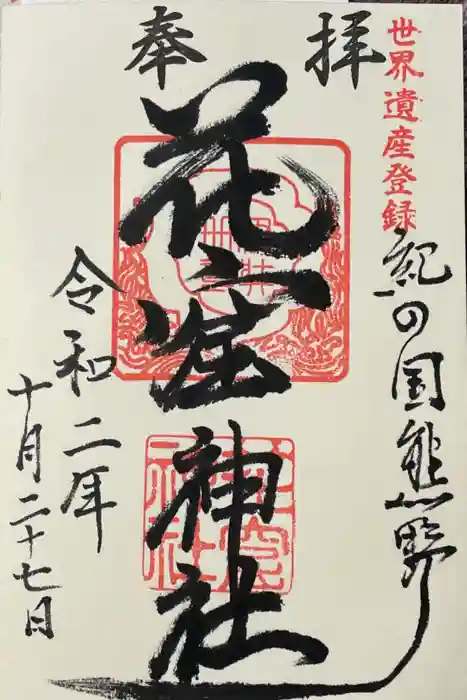 世界遺産登録
紀の国熊野
奉拝
花窟神社
令和二年
十月二十七日